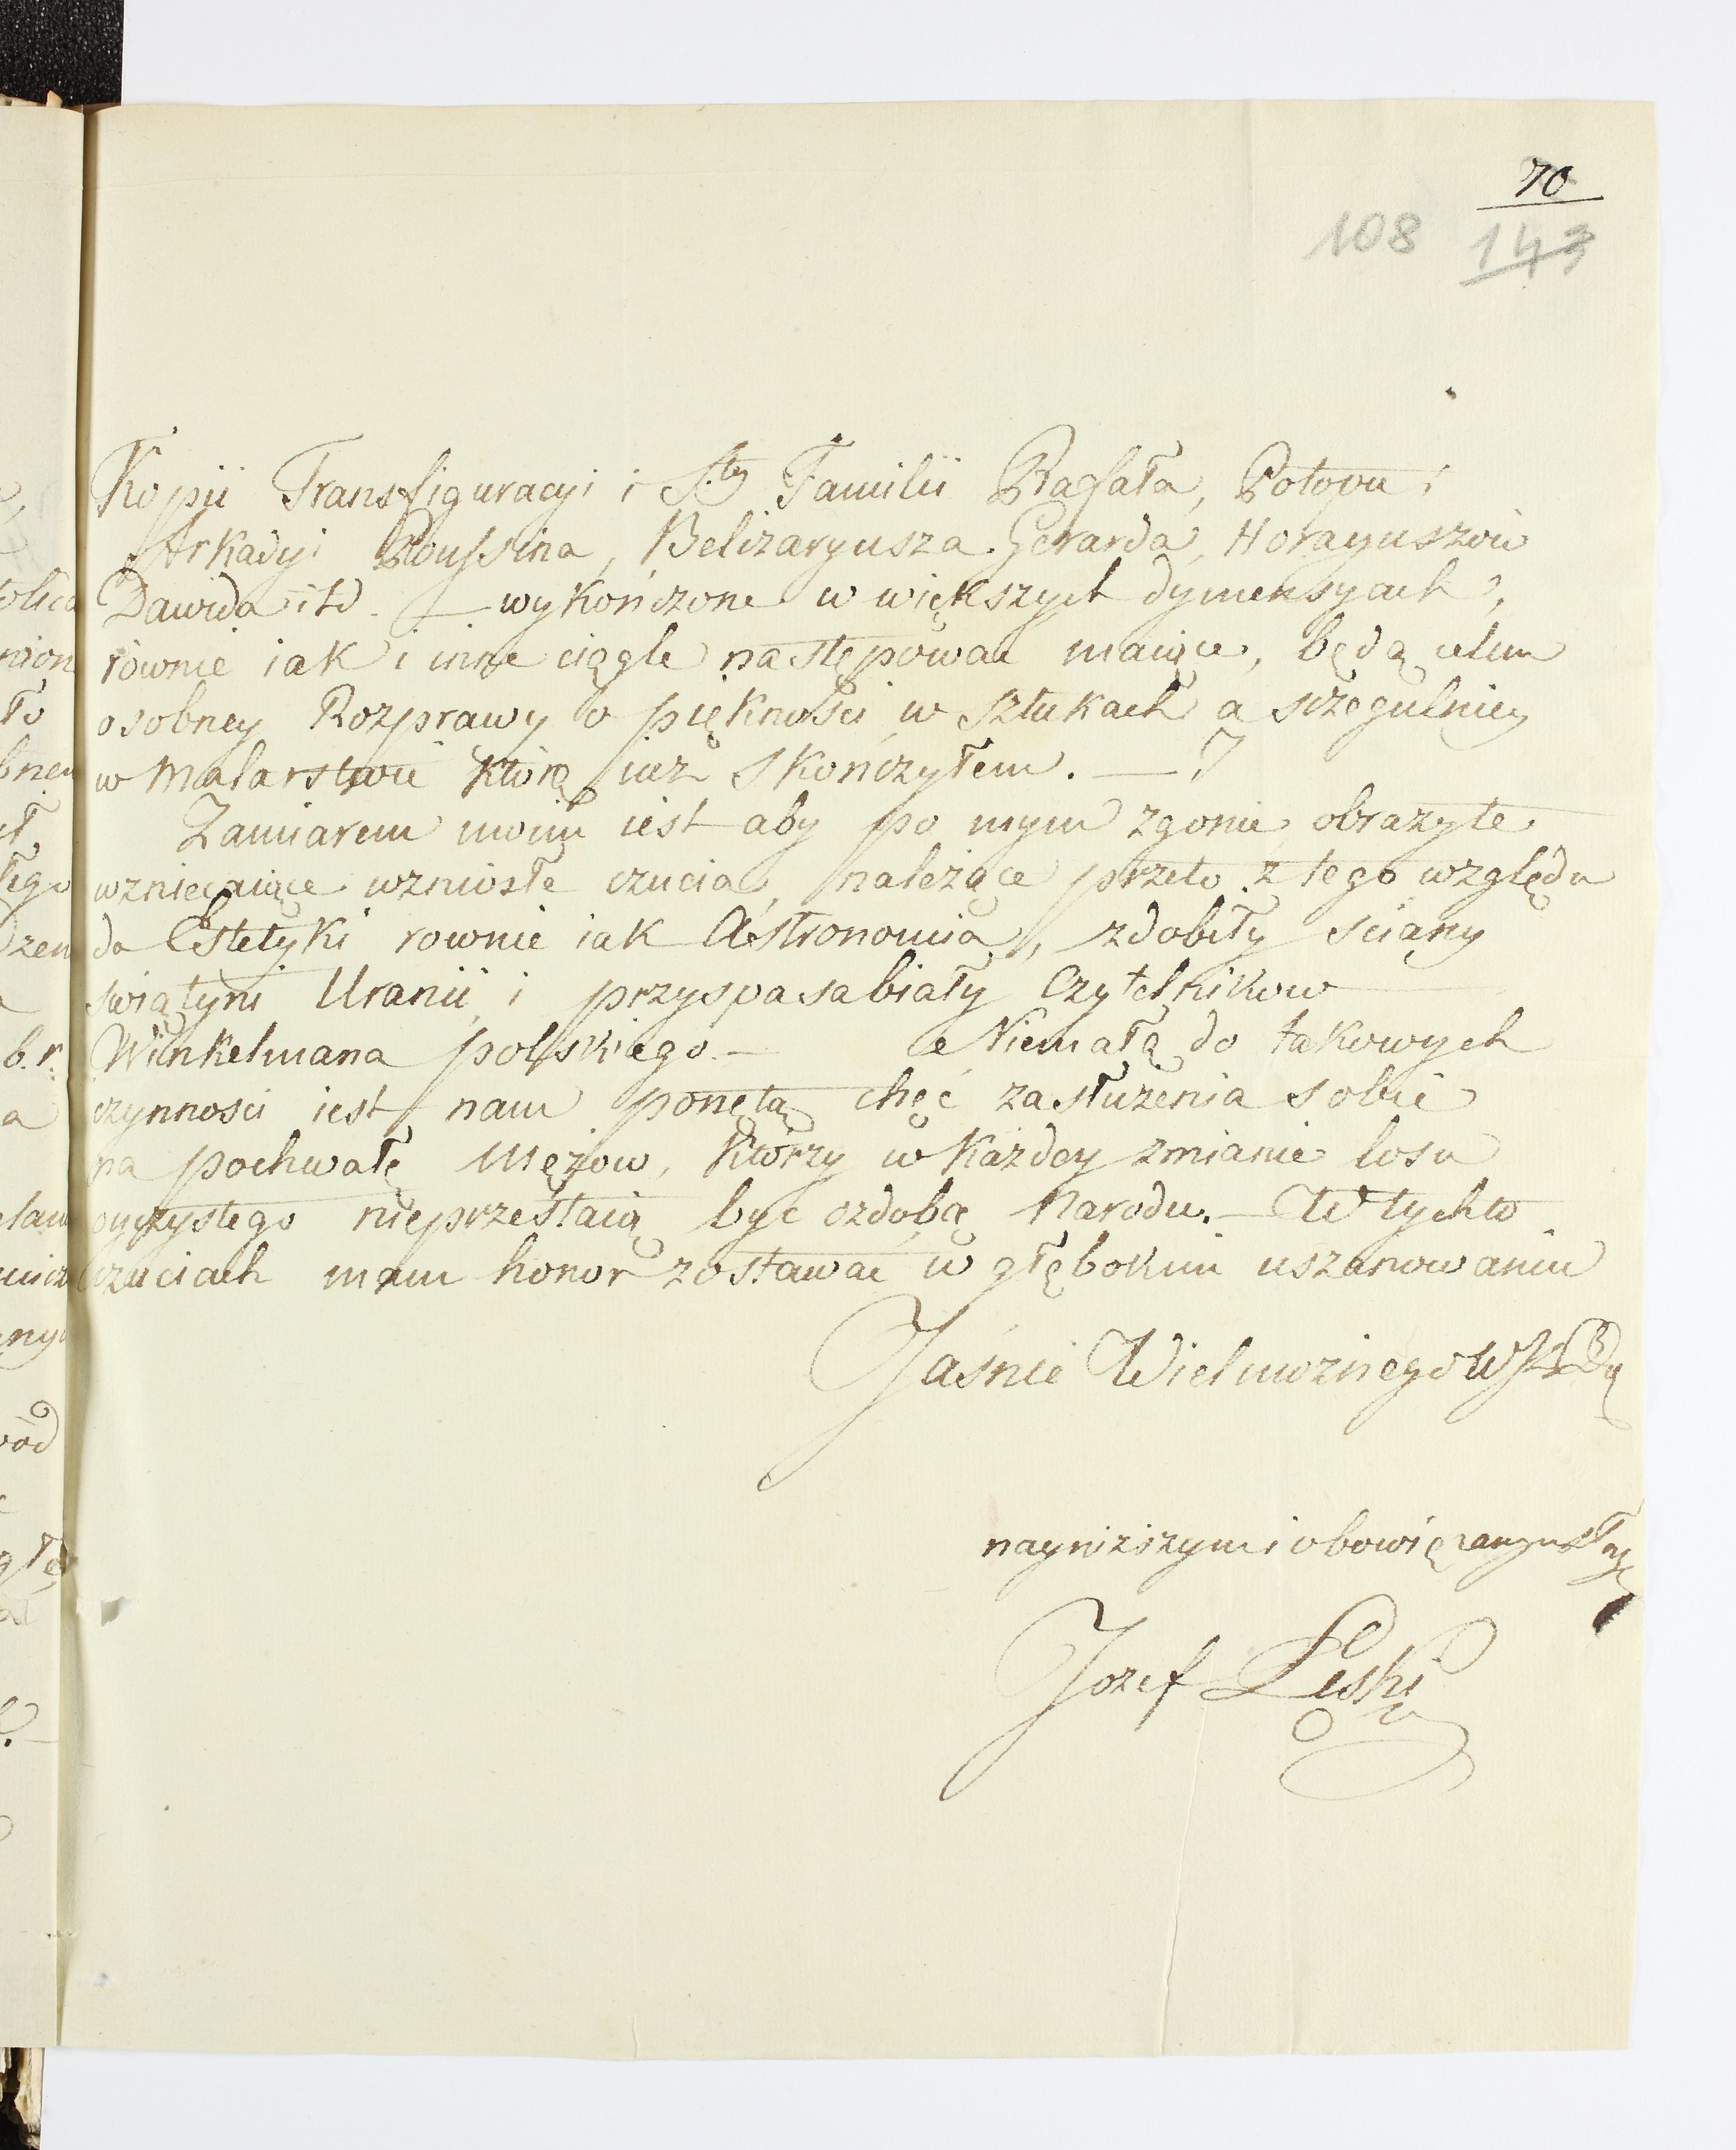 70
108 143
Kopii Transfiguracyi i S.tey Familii Rafała, Potopu i
Arkadyi Poussina, Belizaryusza Gerarda, Horayuszow
Dawida itd. — wykończone w większych dymensyach,
równie iak i inne ciągle następować maiące, będą celem
osobney Rozprawy o piękności w sztukach a szczegulniey
w Malarstwie którą iuż skończyłem. —
Zamiarem moim iest aby po mym zgonie obrazy te
wzniecaiące wzniosłe czucia, należące przeto z tego względu
do Estetyki rownie iak Astronomia, zdobiły sciany
swiątyni Uranii, i przysposabiały Czytelnikow
Winkelmana polskiego. — Niemałą do takowych
czynnosci iest nam ponętą chęć zasłużenia sobie
na pochwałę Mężow, ktorzy w każdey zmianie losu
oyczystego nieprzestaią być ozdobą Narodu. — W tychto
czuciach mam honor zostawać w głębokim uszanowaniu
Jaśnie Wielmożnego
nayniższym i obowiązanym sługą
Jozef Łęski